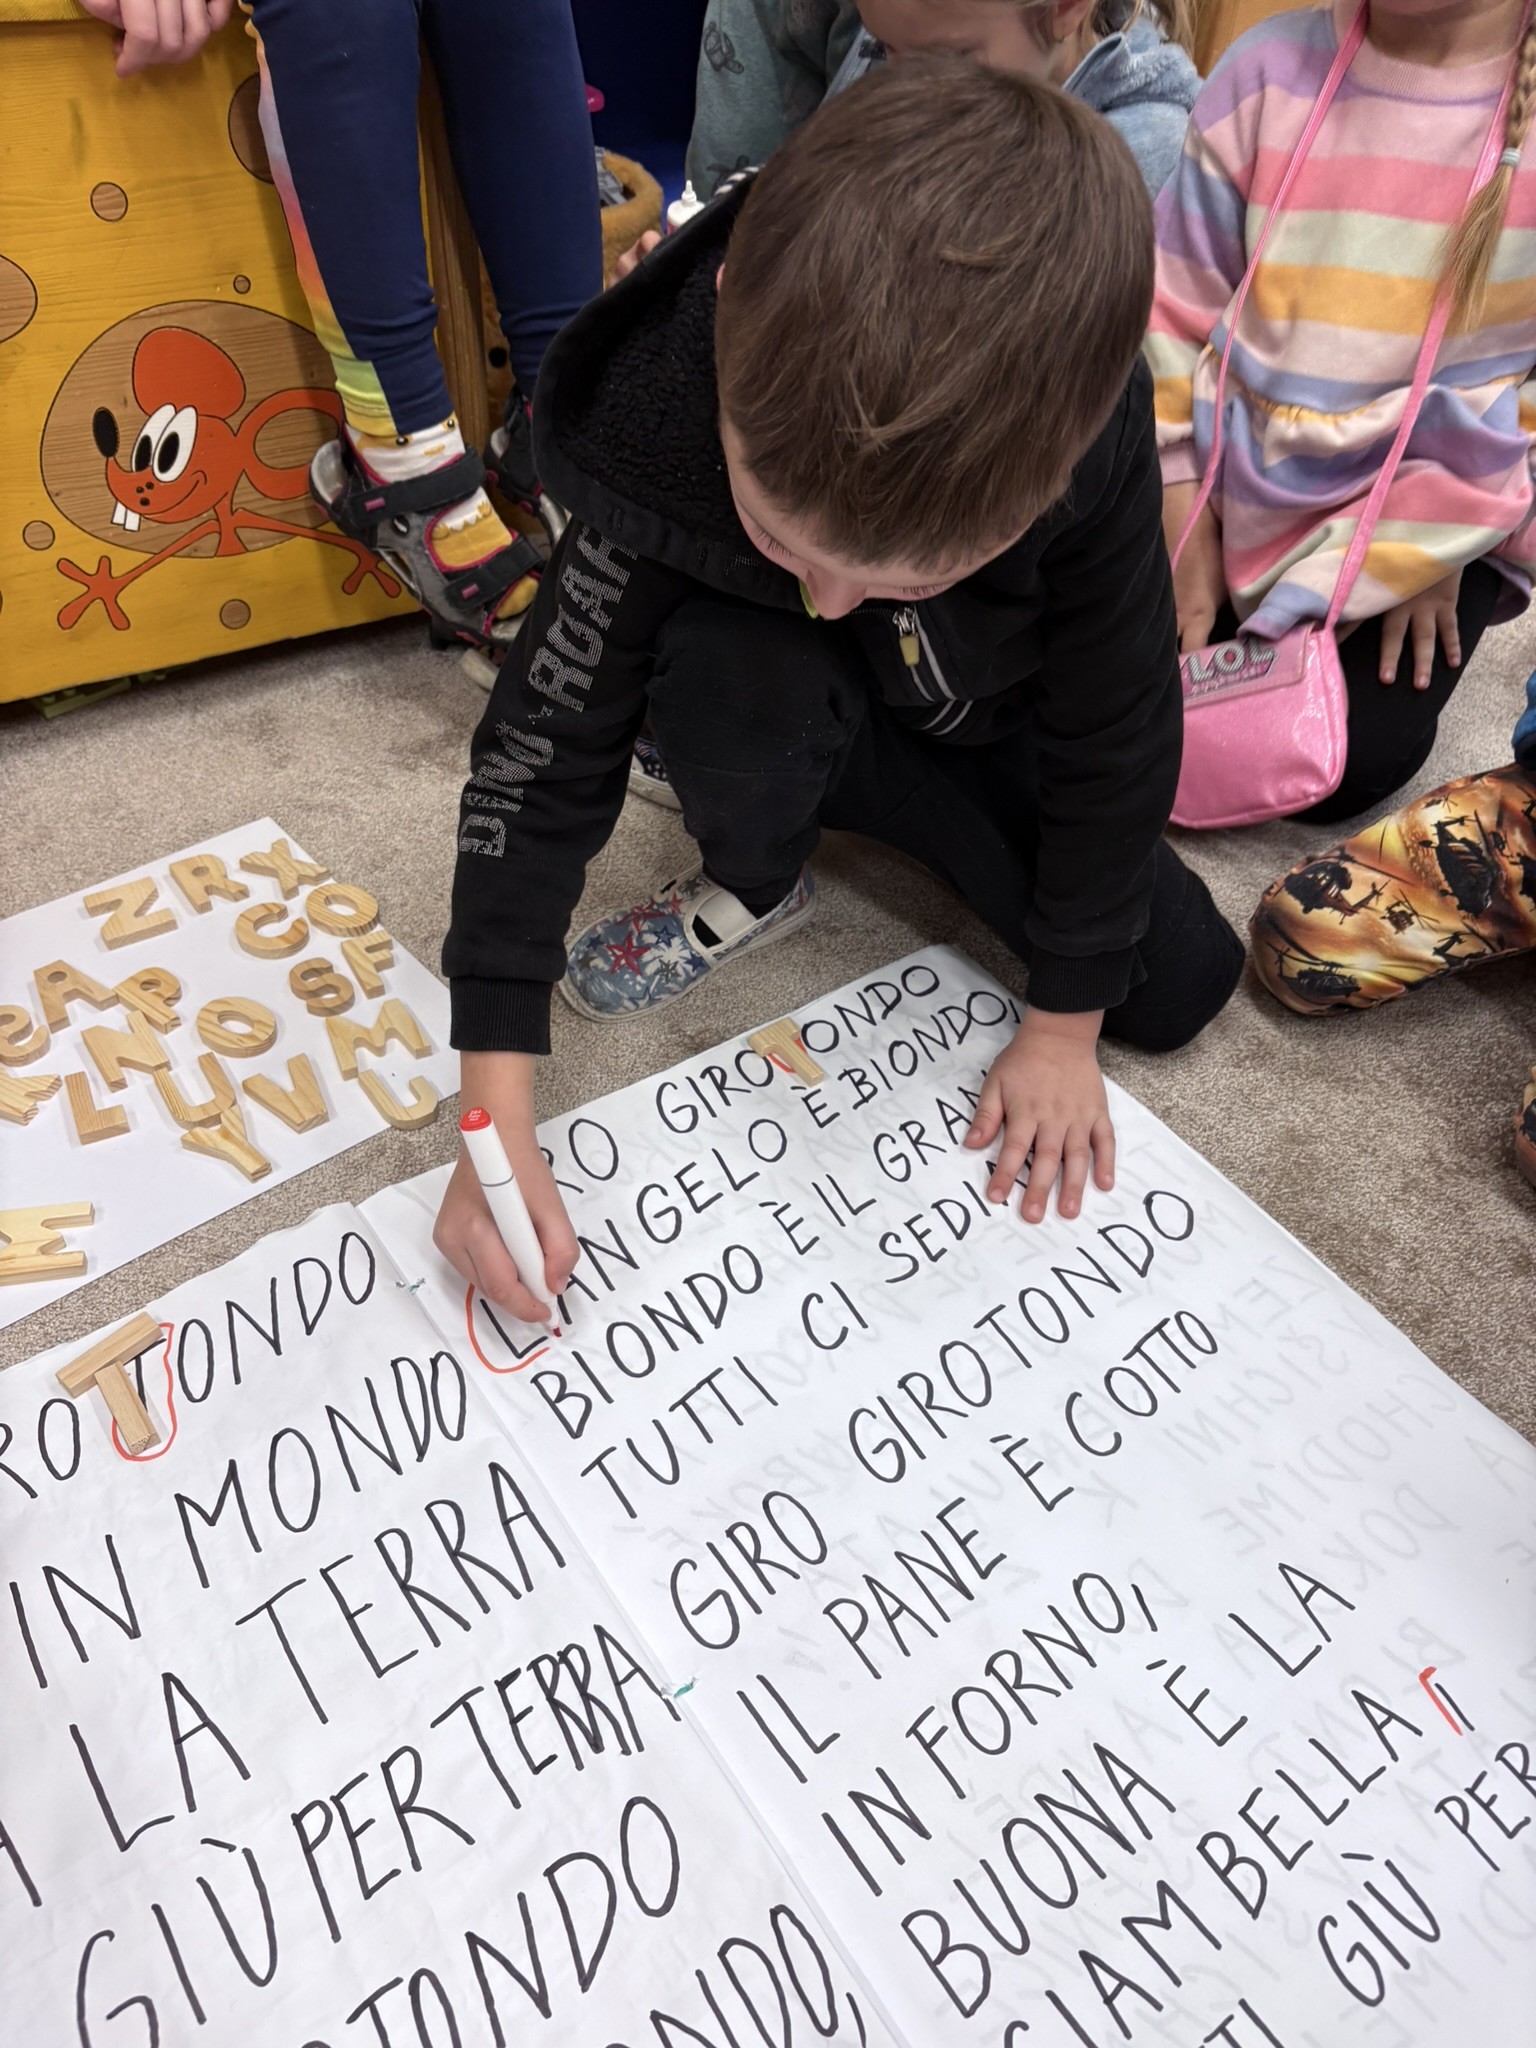 DINO ROAR
LOL
Z R X
C O
A P S F
N O M
L U V U
Y
RO TONDO
IN MONDO
LA TERRA
GIÙ PER TERRA
TONDO
ONDO,
RO GIROTONDO
L'ANGELO È BIONDO,
BIONDO È IL GRAN
TUTTI CI SEDIA
GIRO GIROTONDO
IL PANE È COTTO
IN FORNO,
BUONA È LA
CIAMBELLA
TI GIÙ PER